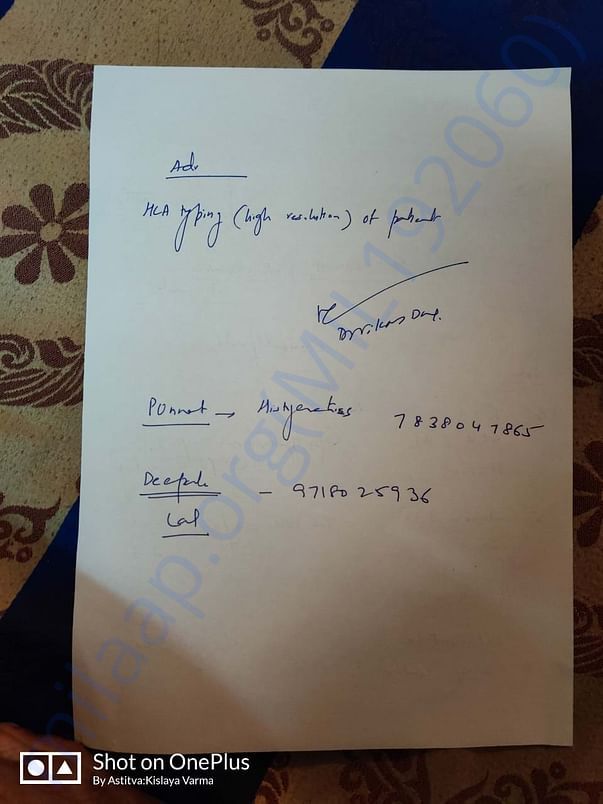 Adv
HLA typing (high resolution) of patient
Dr Vikas Dua.
Punnet → Histogenetics 7838047865
Deepak – 9718025936
Lal
milaap.org(MIL192060)
Shot on OnePlus
By Astitva:Kislaya Varma